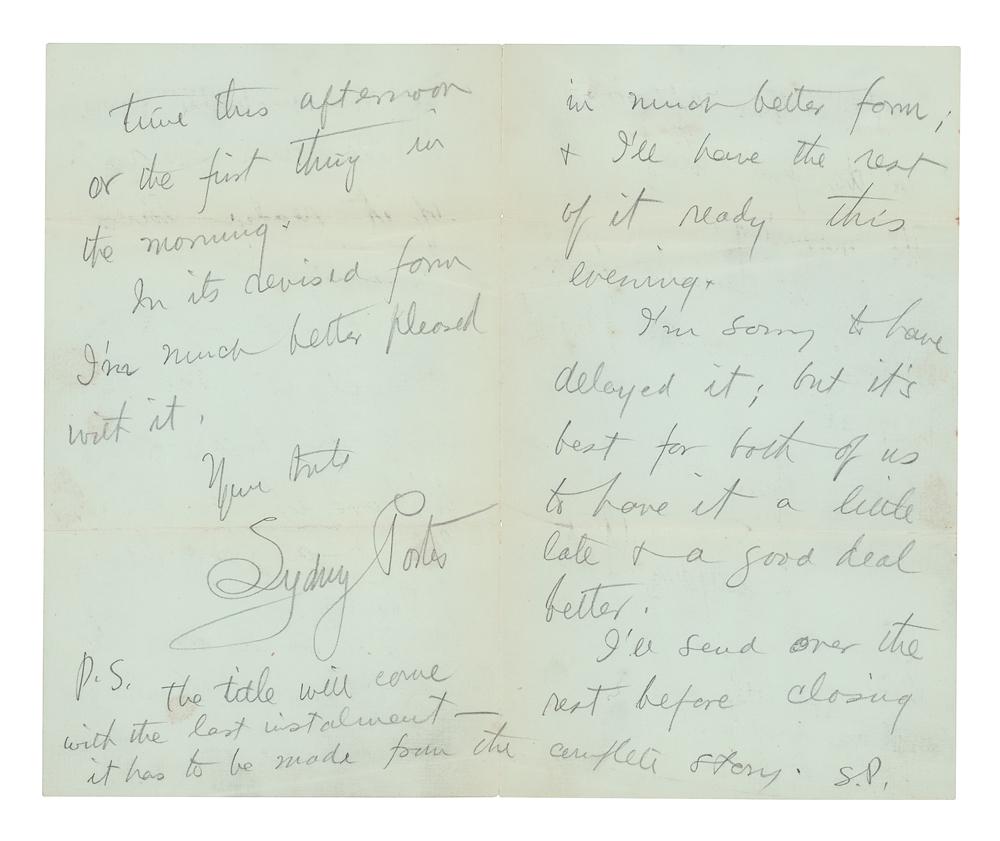 in much better form;
& I'll have the rest
of it ready this
evening.
I'm sorry to have
delayed it; but it's
best for both of us
to have it a little
late & a good deal
better.
I'll send over the
rest before closing
time this afternoon
or the first thing in
the morning.
In its revised form
I'm much better pleased
with it.
Yours truly
Sydney Porter
P.S. the title will come
with the last instalment—
it has to be made from the complete story. S.P.